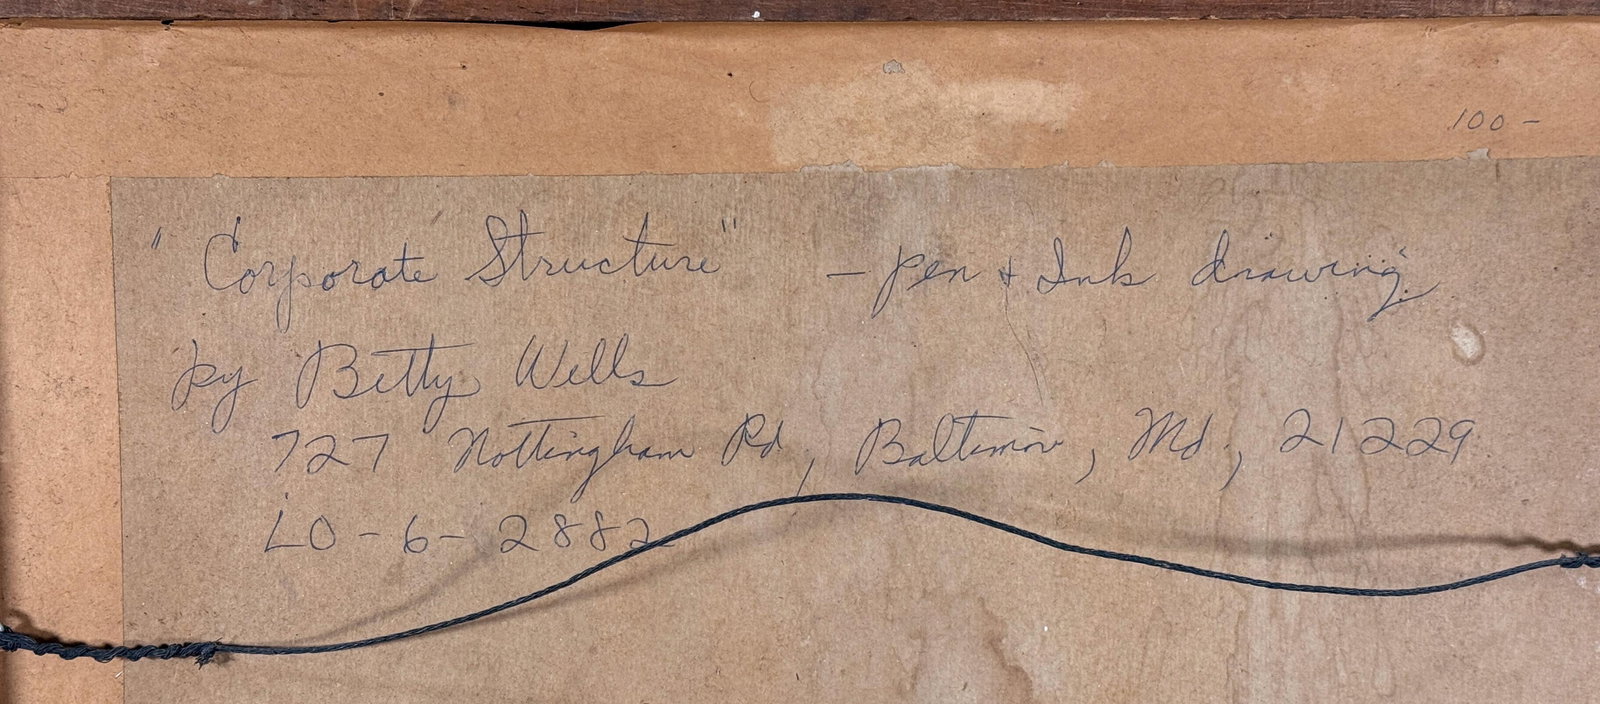 100 -
"Corporate Structure" - pen + Ink drawing
by Betty Wells
727 Nottingham Rd, Baltimore, Md, 21229
LO-6-2882